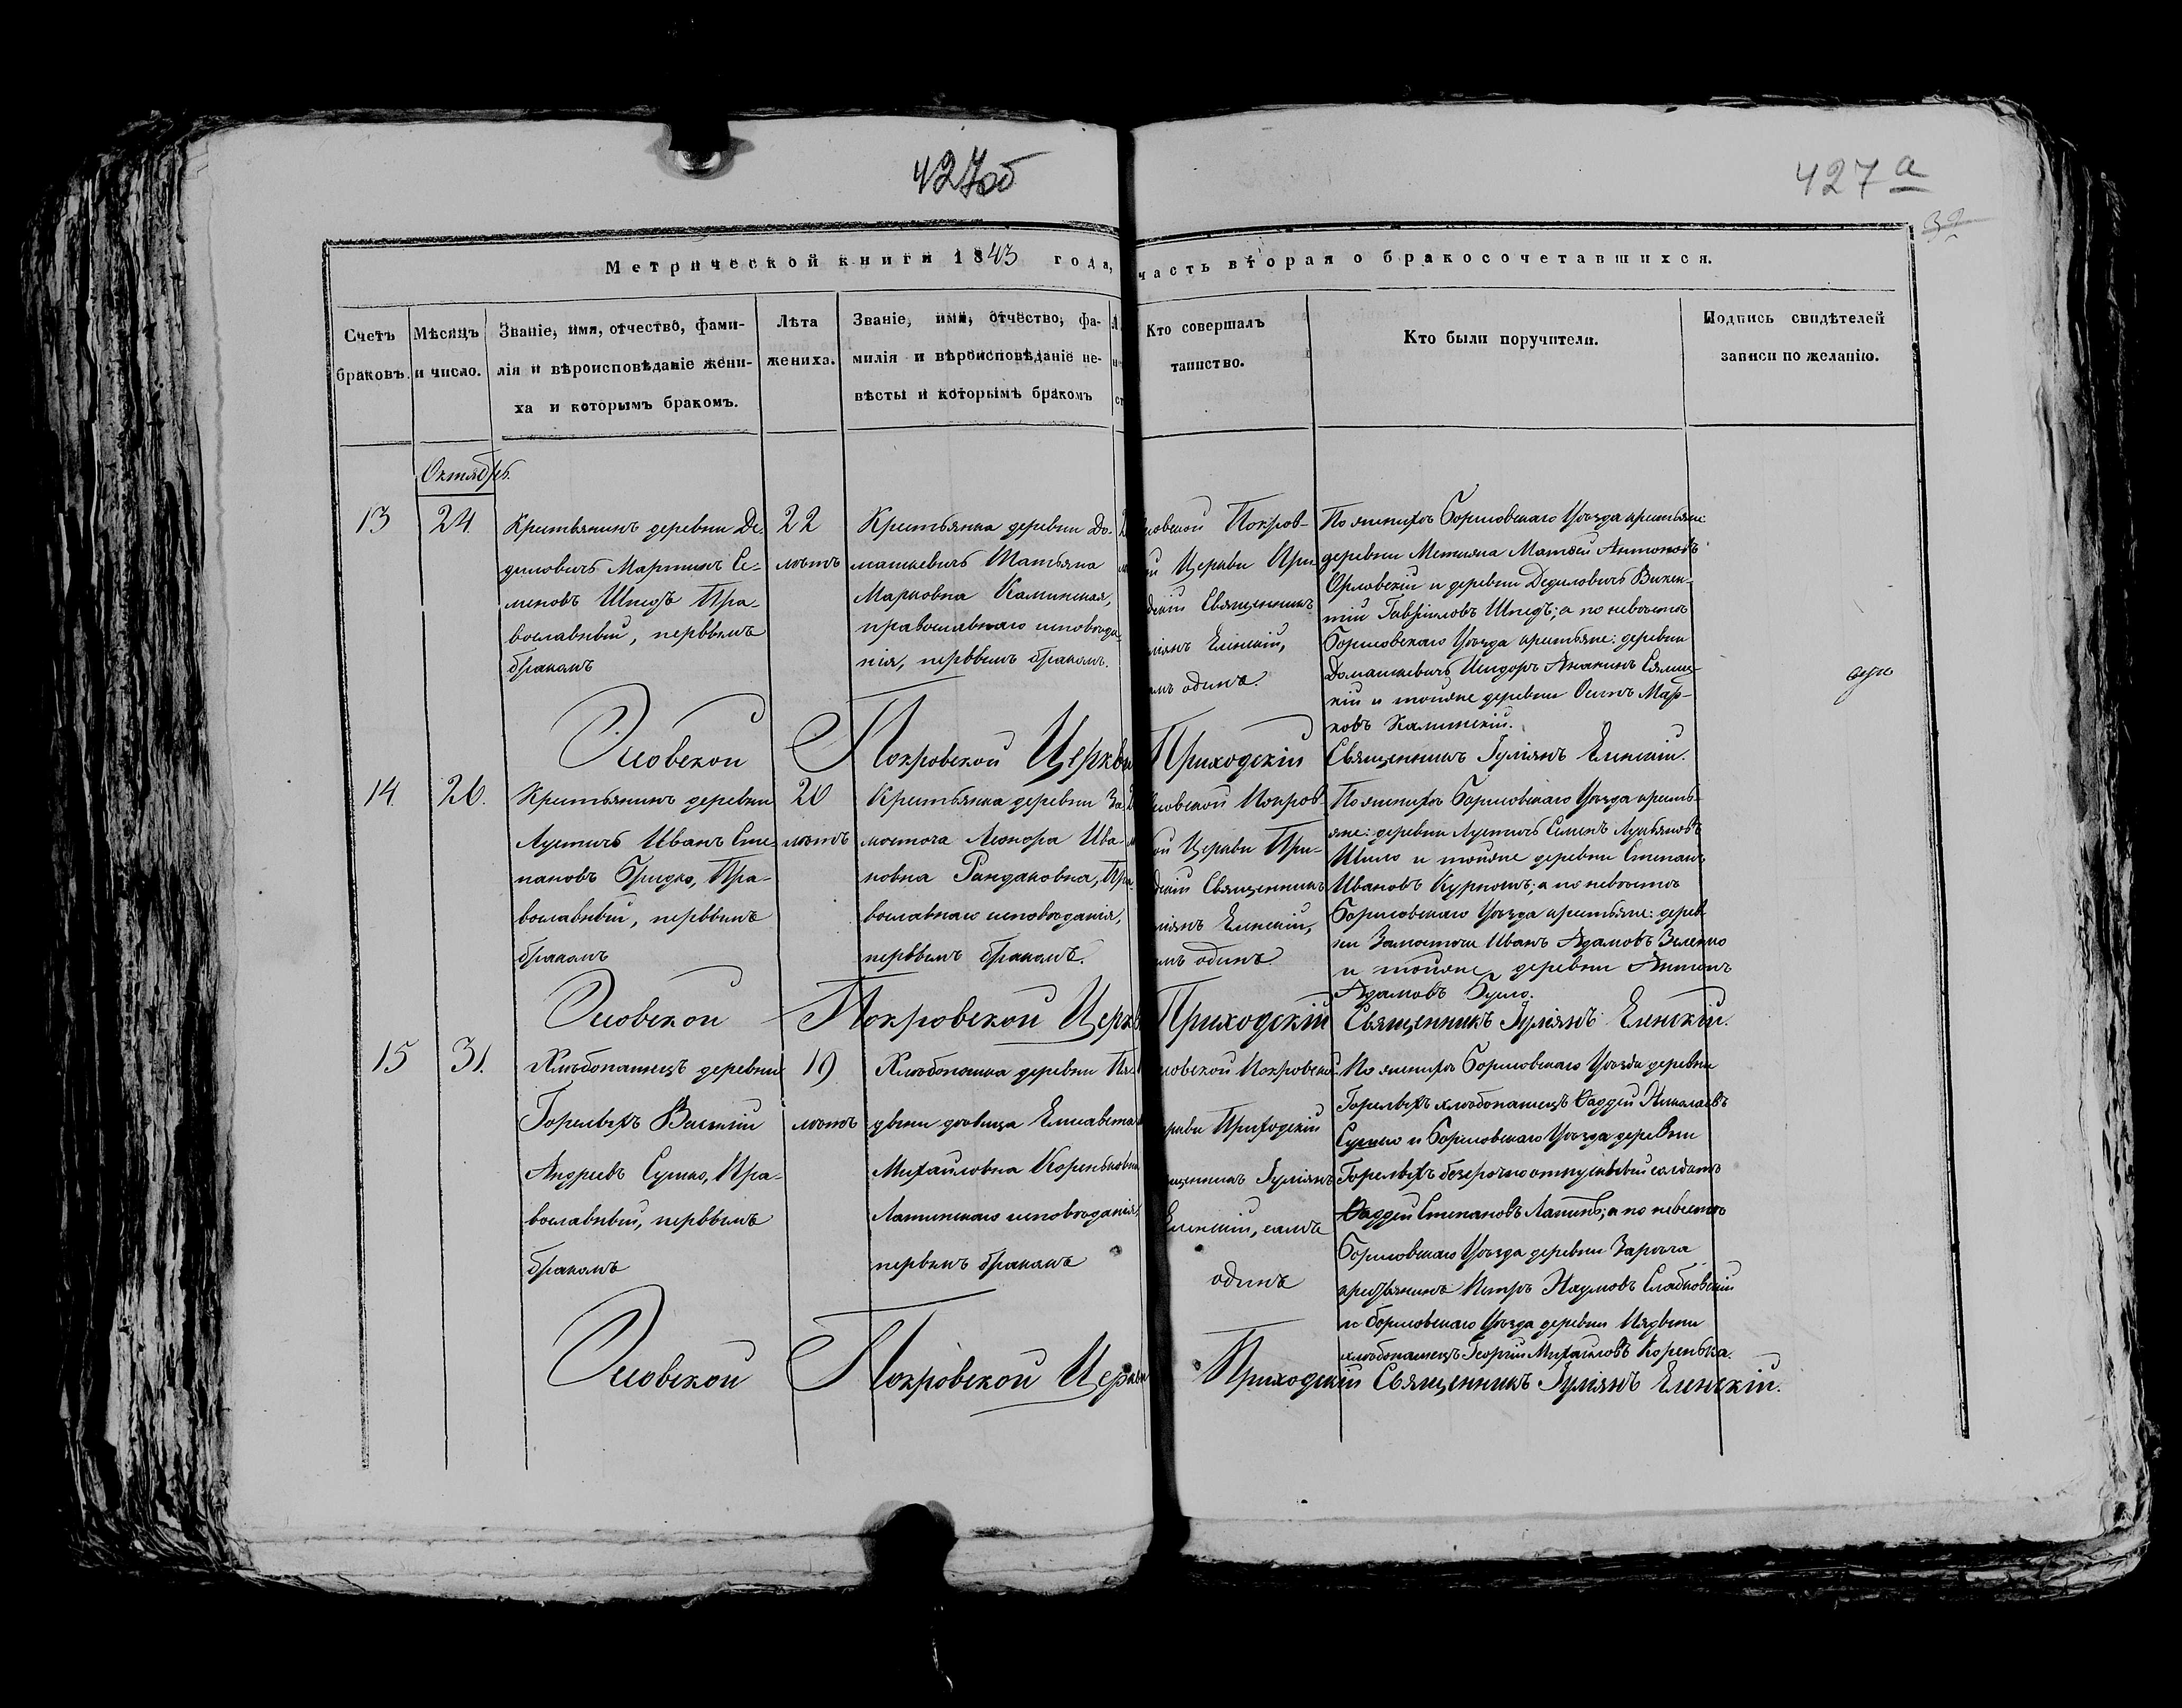 427об
427 а
32
Метрической книги 1843 года, часть вторая о бракосочетавшихся.
Счетъ браковъ.
Мѣсяцъ и число.
Званіе, имя, отчество, фами-
лія и вѣроисповѣданіе жени-
ха и которымъ бракомъ.
Лѣта
жениха.
Званіе, имя, отчество, фа-
милія и вѣроисповѣданіе не-
вѣсты и которымъ бракомъ
Кто совершалъ
таинство.
Кто были поручители.
Подпись свидѣтелей
записи по желанію.
Октябрь.
13
24.
Крестьянинъ деревни Де-
диловичь Мартинъ Се-
меновъ Шпедъ Пра-
вославный, первымъ
бракомъ
22
лѣтъ
Крестьянка деревни До-
машкевичь Татьяна
Марковна Калинская,
православнаго исповѣда-
нія, первымъ бракомъ.
Покров-
Церкви При-
Священникъ
Еленскій,
одинъ.
По женихѣ Борисовскаго Уѣзда крестьяне
деревни Метлина Матвей Антоновъ
Орловскій и деревни Дедиловичь Викен-
тій Гавріиловъ Шпедъ; а по невѣстѣ
Борисовскаго Уѣзда крестьяне: деревни
Домашкевичь Исидоръ Ананинъ
кій и тойже деревни Осипъ Мар-
ковъ Калинскій.
Покровской Церкви Приходскій Священникъ Іуліянъ Еленскій.
14.
26.
Крестьянинъ деревни
Лустичь Иванъ Сте-
пановъ Бридко, Пра-
вославный, первымъ
бракомъ
20
лѣтъ
Крестьянка деревни За-
мосточа Леонора Ива-
новна Рандаковна, Пра-
вославнаго исповѣданія,
первымъ бракомъ.
Покров-
Церкви При-
Священникъ
Еленскій,
одинъ.
По женихѣ Борисовскаго Уѣзда кресть-
яне: деревни Лустичь Семенъ Лукьяновъ
Шило и тойже деревни Степанъ
Ивановъ Курношъ; а по невѣстѣ
Борисовскаго Уѣзда крестьяне: дерев-
ни Замосточа Иванъ Адамовъ Зеленко
и тойже деревни Антонъ
Адамовъ Було.
Покровской Церкви Приходскій Священникъ Іуліянъ Еленскій.
15
31.
Хлѣбопашецъ деревни
Горелыхъ Василій
Андреевъ Сушко, Пра-
вославный, первымъ
бракомъ
19
лѣтъ
Хлѣбопашка деревни Ня-
двени дѣвица Елисавета
Михайловна Кореньковна
Латинскаго исповѣданія,
первымъ бракомъ
Покровской
Церкви Приходскій
Іуліянъ
Еленскій, самъ
одинъ
По женихѣ Борисовскаго Уѣзда деревни
Горелыхъ хлѣбопашецъ Фаддей Николаевъ
Сушко и Борисовскаго Уѣзда деревни
Горелыхъ безсрочноотпускный солдатъ
Фаддей Степановъ Лапинъ; а по невѣстѣ
Борисовскаго Уѣзда деревни Заречча
крестьянинъ Петръ Наумовъ Слабковскій
и Борисовскаго Уѣзда деревни Нядвени
хлѣбопашецъ Георгій Михайловъ Коренька.
Покровской Церкви Приходскій Священникъ Іуліянъ Еленскій.